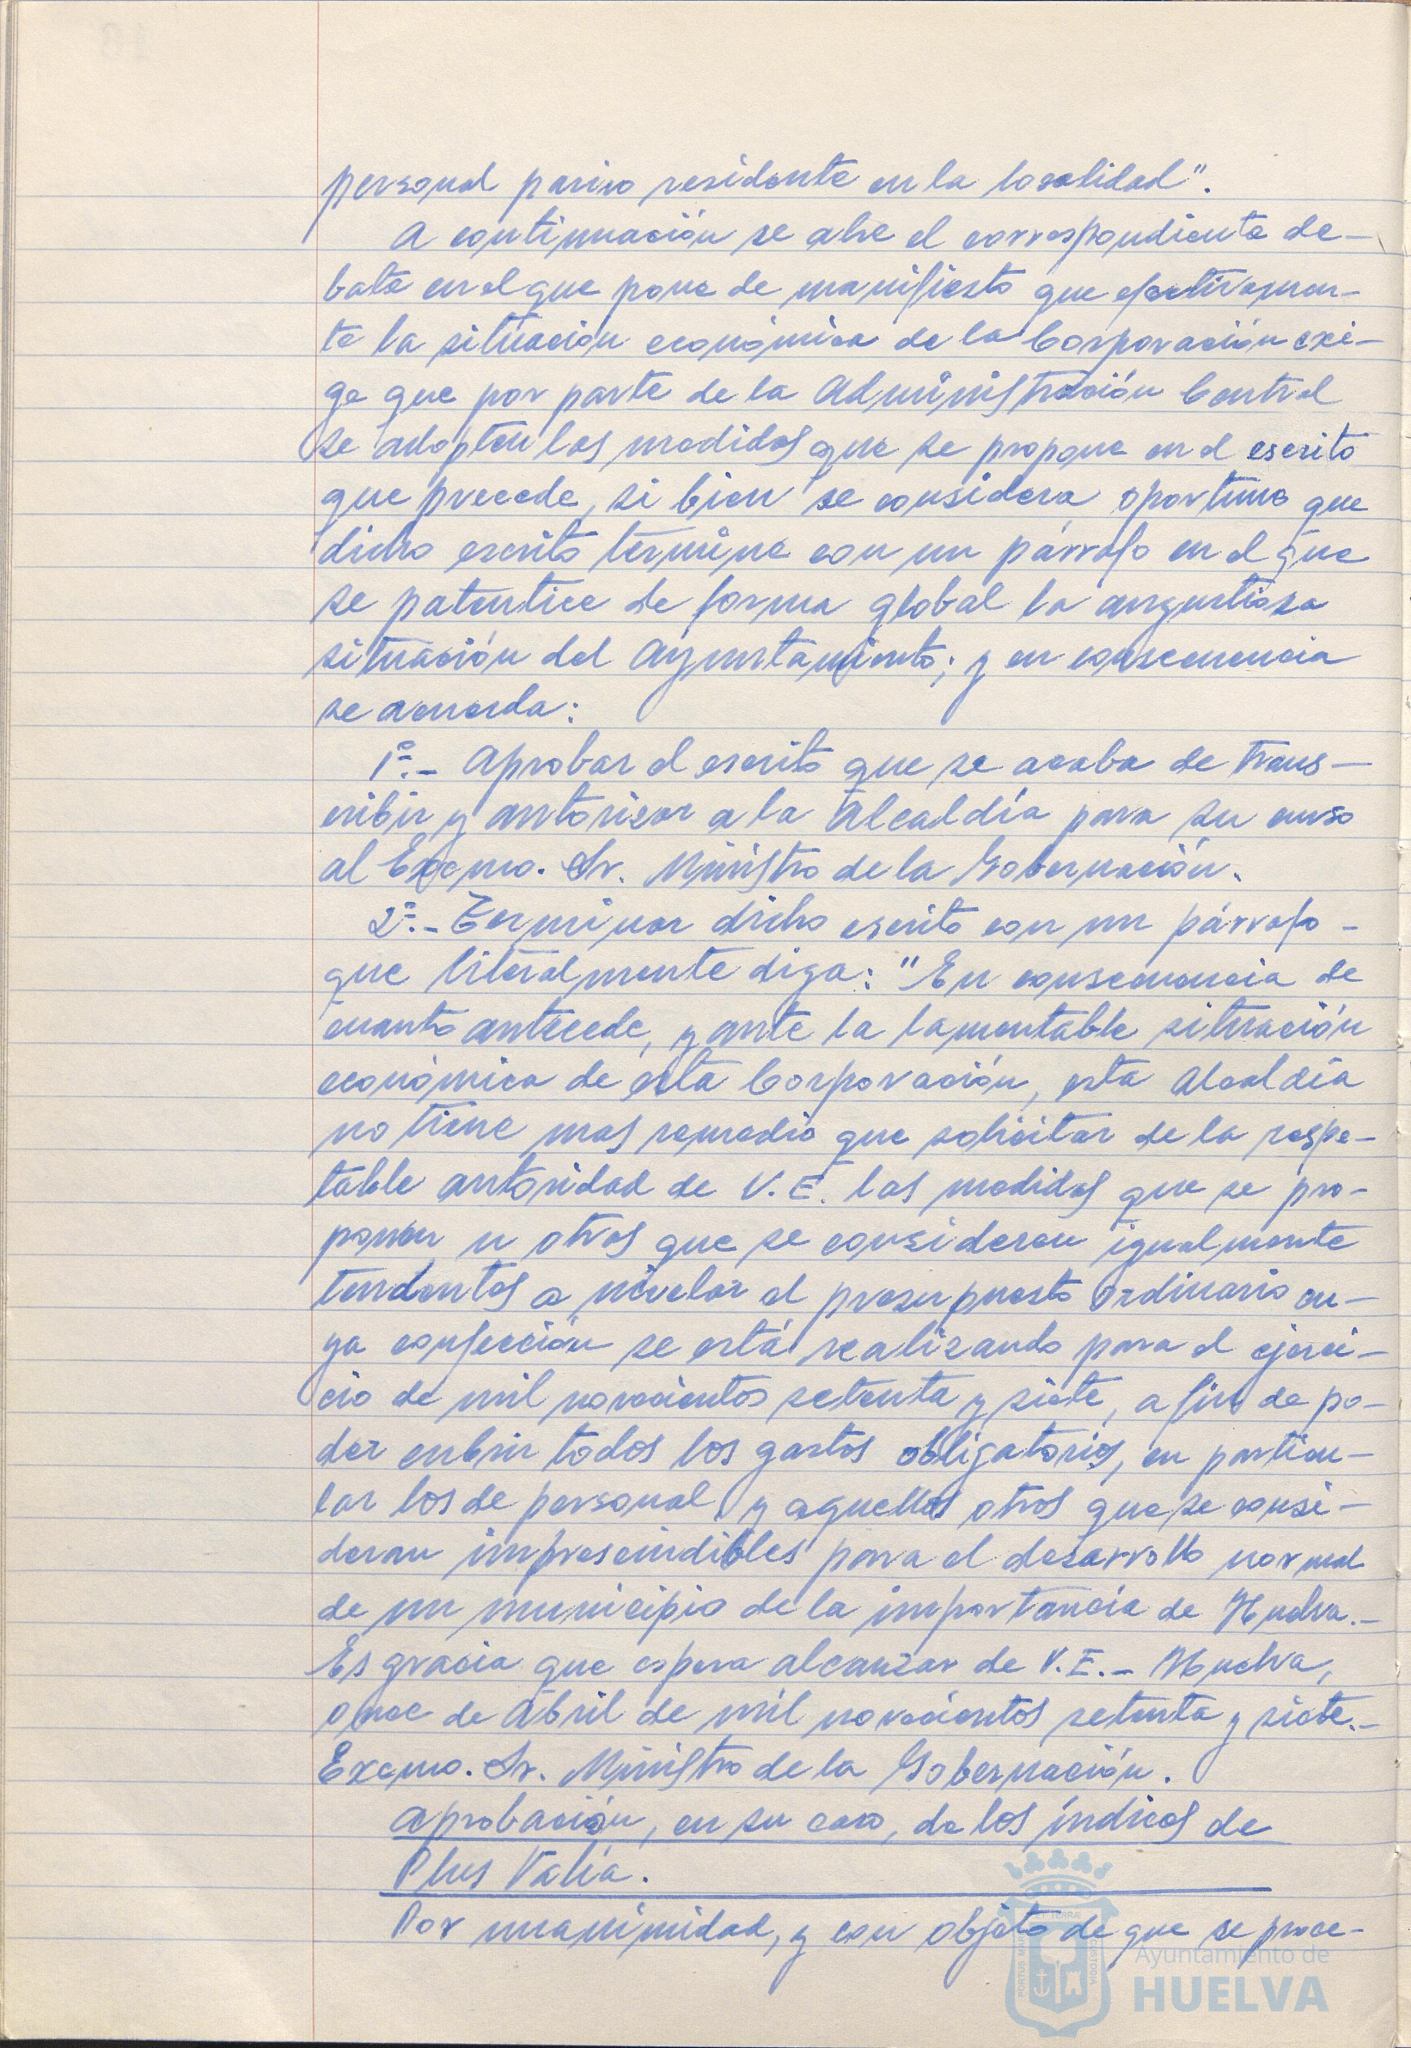 personal pasivo residente en la localidad".
A continuación se abre el correspondiente de-
bate en el que pone de manifiesto que efectivamen-
te la situación económica de la Corporación exi-
ge que por parte de la Administración Central
se adopten las medidas que se propone en el escrito
que precede, si bien se considera oportuno que
dicho escrito termine con un párrafo en el que
se patentice de forma global la angustiosa
situación del Ayuntamiento; y en consecuencia
se acuerda:
1º.- Aprobar el escrito que se acaba de trans-
cribir y autorizar a la Alcaldía para su curso
al Excmo. Sr. Ministro de la Gobernación.
2º.- Terminar dicho escrito con un párrafo -
que literalmente diga: "En consecuencia de
cuanto antecede, y ante la lamentable situación
económica de esta Corporación, esta Alcaldía
no tiene mas remedio que solicitar de la respe-
table autoridad de V.E. las medidas que se pro-
ponen u otras que se consideren igualmente
tendentes a nivelar el presupuesto Ordinario cu-
ya confección se está realizando para el ejerci-
cio de mil novecientos setenta y siete, a fin de po-
der cubrir todos los gastos obligatorios, en particu-
lar los de personal y aquellos otros que se consi-
deran imprescindibles para el desarrollo normal
de un municipio de la importancia de Huelva.-
Es gracia que espera alcanzar de V.E.- Huelva,
once de Abril de mil novecientos setenta y siete.-
Excmo. Sr. Ministro de la Gobernación.
Aprobación, en su caso, de los índices de
Plus Valía.
Por unanimidad, y con objeto de que se proce-
Ayuntamiento de
HUELVA